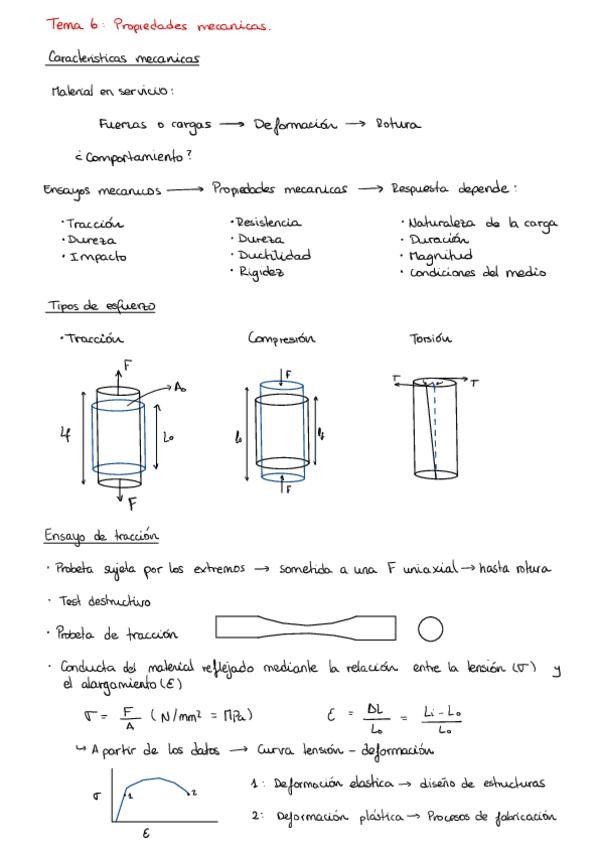 Tema 6: Propiedades mecanicas.
Caracteristicas mecanicas
Material en servicio:
Fuerzas o cargas → Deformación → Rotura
¿Comportamiento?
Ensayos mecanicos → Propiedades mecanicas → Respuesta depende:
· Tracción · Resistencia · Naturaleza de la carga
· Dureza · Dureza · Duración
· Impacto · Ductilidad · Magnitud
· Rigidez · Condiciones del medio
Tipos de esfuerzo
· Tracción Compresión Torsión
F F
A₀ T T
Lf L₀ L₀ Lf
F F
Ensayo de tracción
· Probeta sujeta por los extremos → sometida a una F uniaxial → hasta rotura
· Test destructivo
· Probeta de tracción
· Conducta del material reflejado mediante la relación entre la tensión (σ) y
el alargamiento (ε)
σ = F/A (N/mm² = MPa) ε = ΔL/L₀ = (Li - L₀)/L₀
↳ A partir de los datos → Curva tensión - deformación
σ 1 2 1: Deformación elastica → diseño de estructuras
ε 2: Deformación plástica → Procesos de fabricación